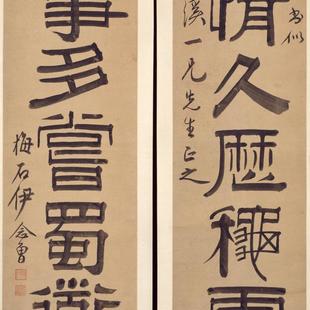 書似
情久歷穐
溪一兄先生正之
事多嘗蜀
梅石伊念曾